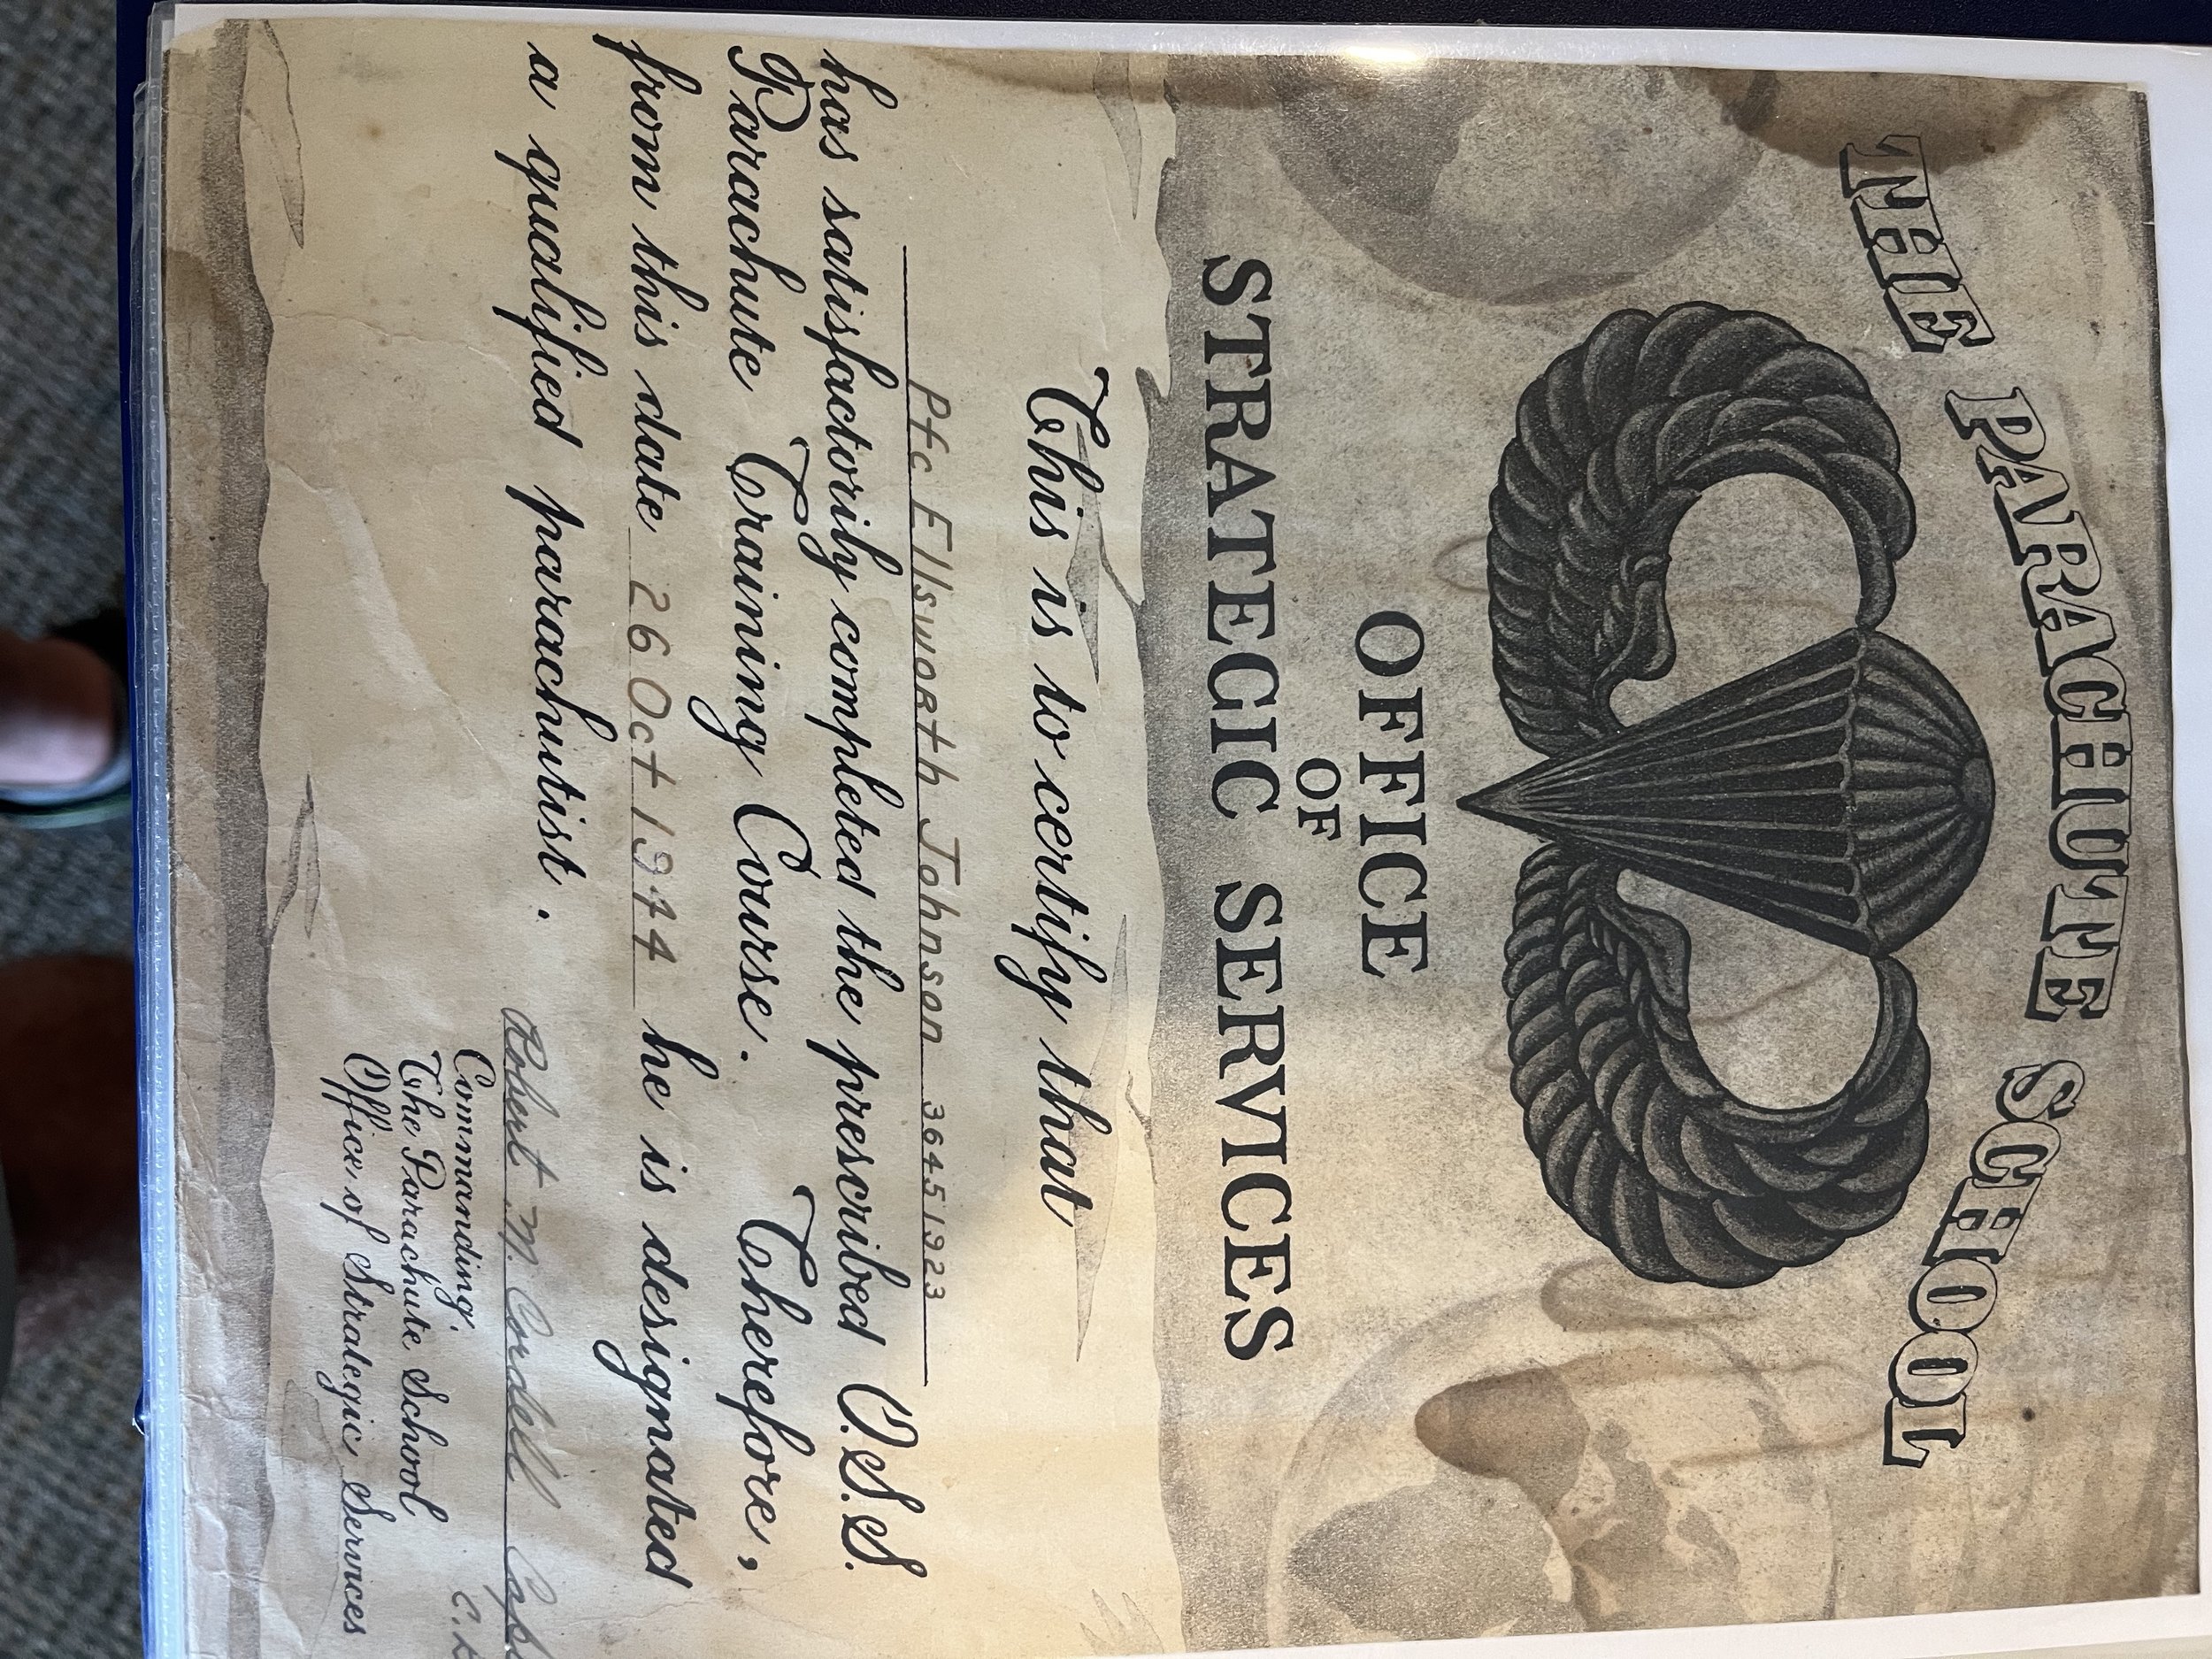 THE PARACHUTE SCHOOL
OFFICE
OF
STRATEGIC SERVICES
This is to certify that
Pfc Ellsworth Johnson 36451923
has satisfactorily completed the prescribed O.S.S.
Parachute Training Course. Therefore,
from this date 26 Oct 1944 he is designated
a qualified parachutist.
Robert M. Cordell Capt
Commanding.
The Parachute School
Office of Strategic Services